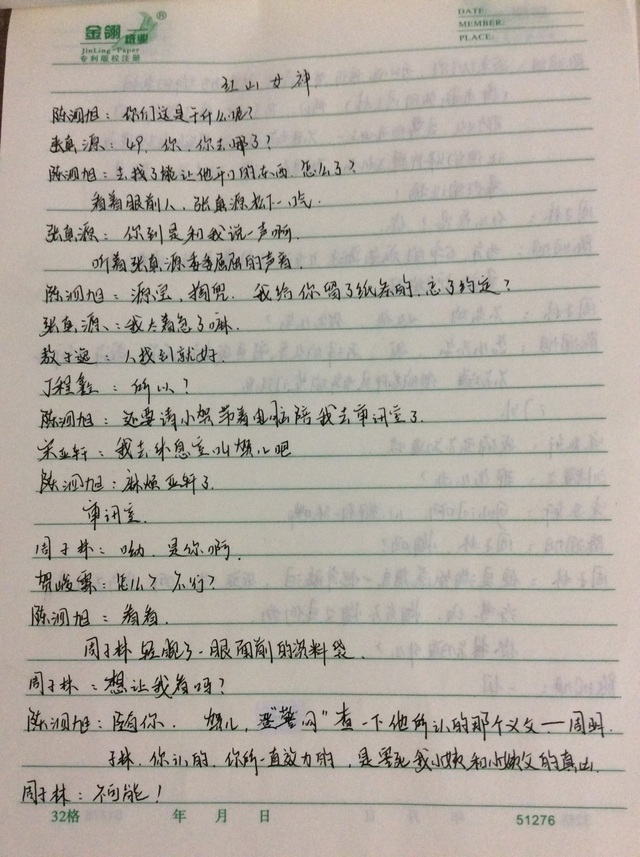 金翎
纸业®
JinLing-Paper
专利版权注册
DATE
MEMBER:
PLACE:
红山女神
陈泗旭：你们这是干什么呢？
张真源：49，你，你去哪了？
陈泗旭：去找了能让他开口的东西，怎么了？
看着眼前人，张真源松下一口气.
张真源：你到是和我说一声啊.
听着张真源委委屈屈的声音.
陈泗旭：源宝，掏兜，我给你留了纸条的，忘了约定？
张真源：我太着急了嘛.
敖子逸：人找到就好.
丁程鑫：所以？
陈泗旭：还要请小贺带着电脑陪我去审讯室了.
宋亚轩：我去休息室叫贺儿吧
陈泗旭：麻烦亚轩了.
审讯室.
周子林：呦，是你啊.
贺峻霖：怎么？不行？
陈泗旭：看看.
周子林轻瞥了一眼面前的资料袋.
周子林：想让我看吗？
陈泗旭：随你. 贺儿，"警网"查一下他所认的那个义父——周明.
子林，你认的，你所一直效力的，是害死我小姨和小姨父的真凶.
周子林：不可能！
32格
年 月 日
51276